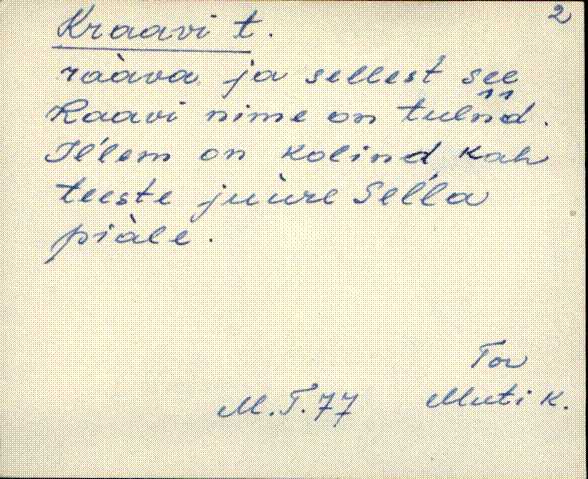 2
Kraavi t.
ràava ja sellest see
Raavi nime on tulnd.
Il'lem on kolind kah
teeste juùre Sel'la
piàle.
Tor
M.T.77 Muti k.